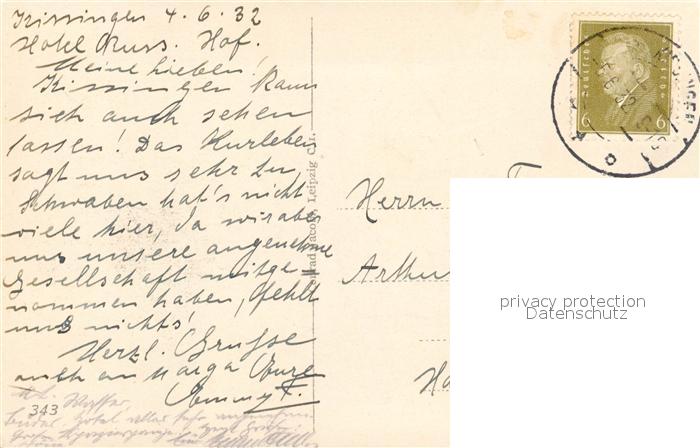 Kissingen 4.6.32
Hotel Russ. Hof.
Meine Lieben!
Kissingen kann
sich auch sehen
lassen! Das Kurleben
sagt uns sehr zu,
Schwaben hat's nicht
viele hier, da wir aber
uns unsere angenehme
Gesellschaft mitge
nommen haben, fehlt
uns nichts!
Herzl. Grüsse
auch an Marga Eure
Emmy F.
343
Leipzig C. 1.
Deutsches Reich
6 6
Herrn
Arthur
privacy protection
Datenschutz